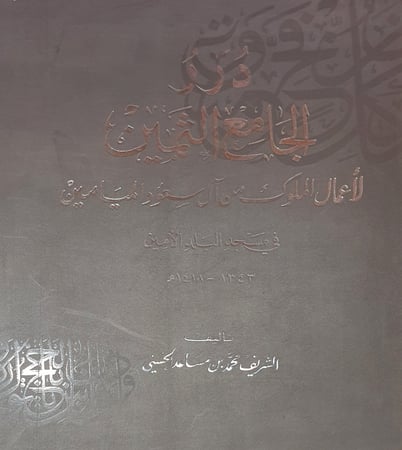 درر
الجامع الثمين
لأعمال الملوك من آل سعود الميامين
في مسجد البلد الأمين
١٣٤٣ - ١٤١١هـ
تأليف
الشريف محمد بن مساعد الحسيني